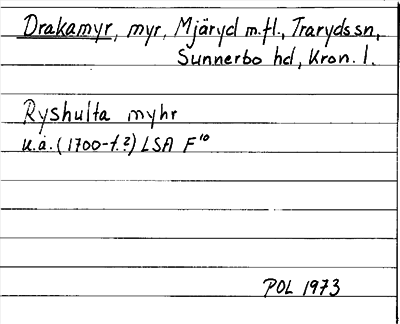 Drakamyr, myr, Mjäryd m.fl., Traryds sn,
Sunnerbo hd, Kron. l.
Ryshulta myhr
u.å. (1700-t.?) LSA F¹⁰
POL 1973